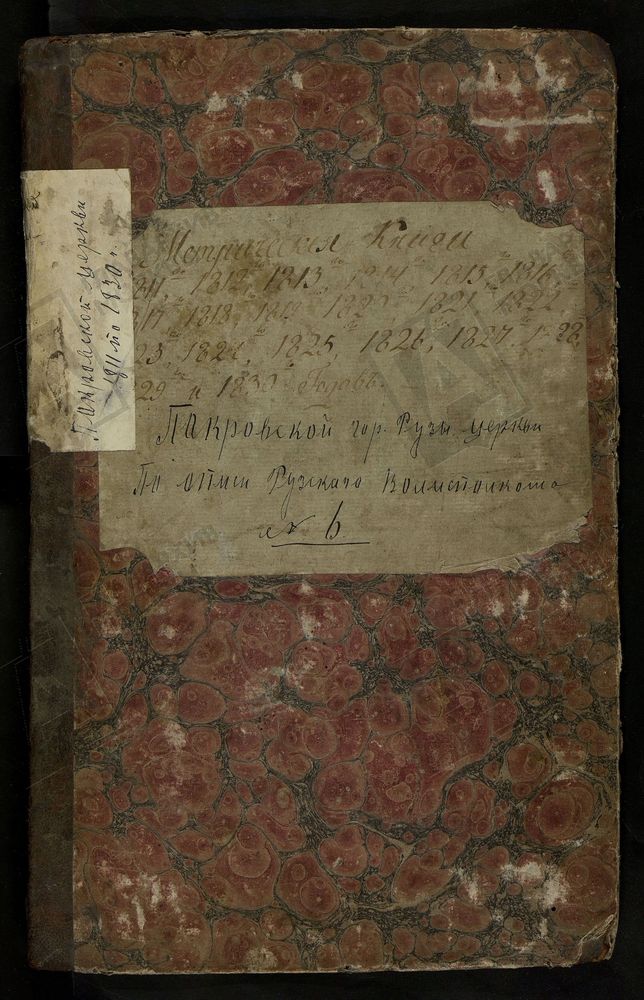 Покровской церкви
1811 по 1830 г.
Метрическия Книги
1811, 1812, 1813, 1814, 1815, 1816
1817, 1818, 1819, 1820, 1821, 1822,
1823, 1824, 1825, 1826, 1827, 1828,
1829 и 1830 Годовъ.
Пакровской гор. Рузы церкви
По описи Рузскаго Волисполкома
№ 6